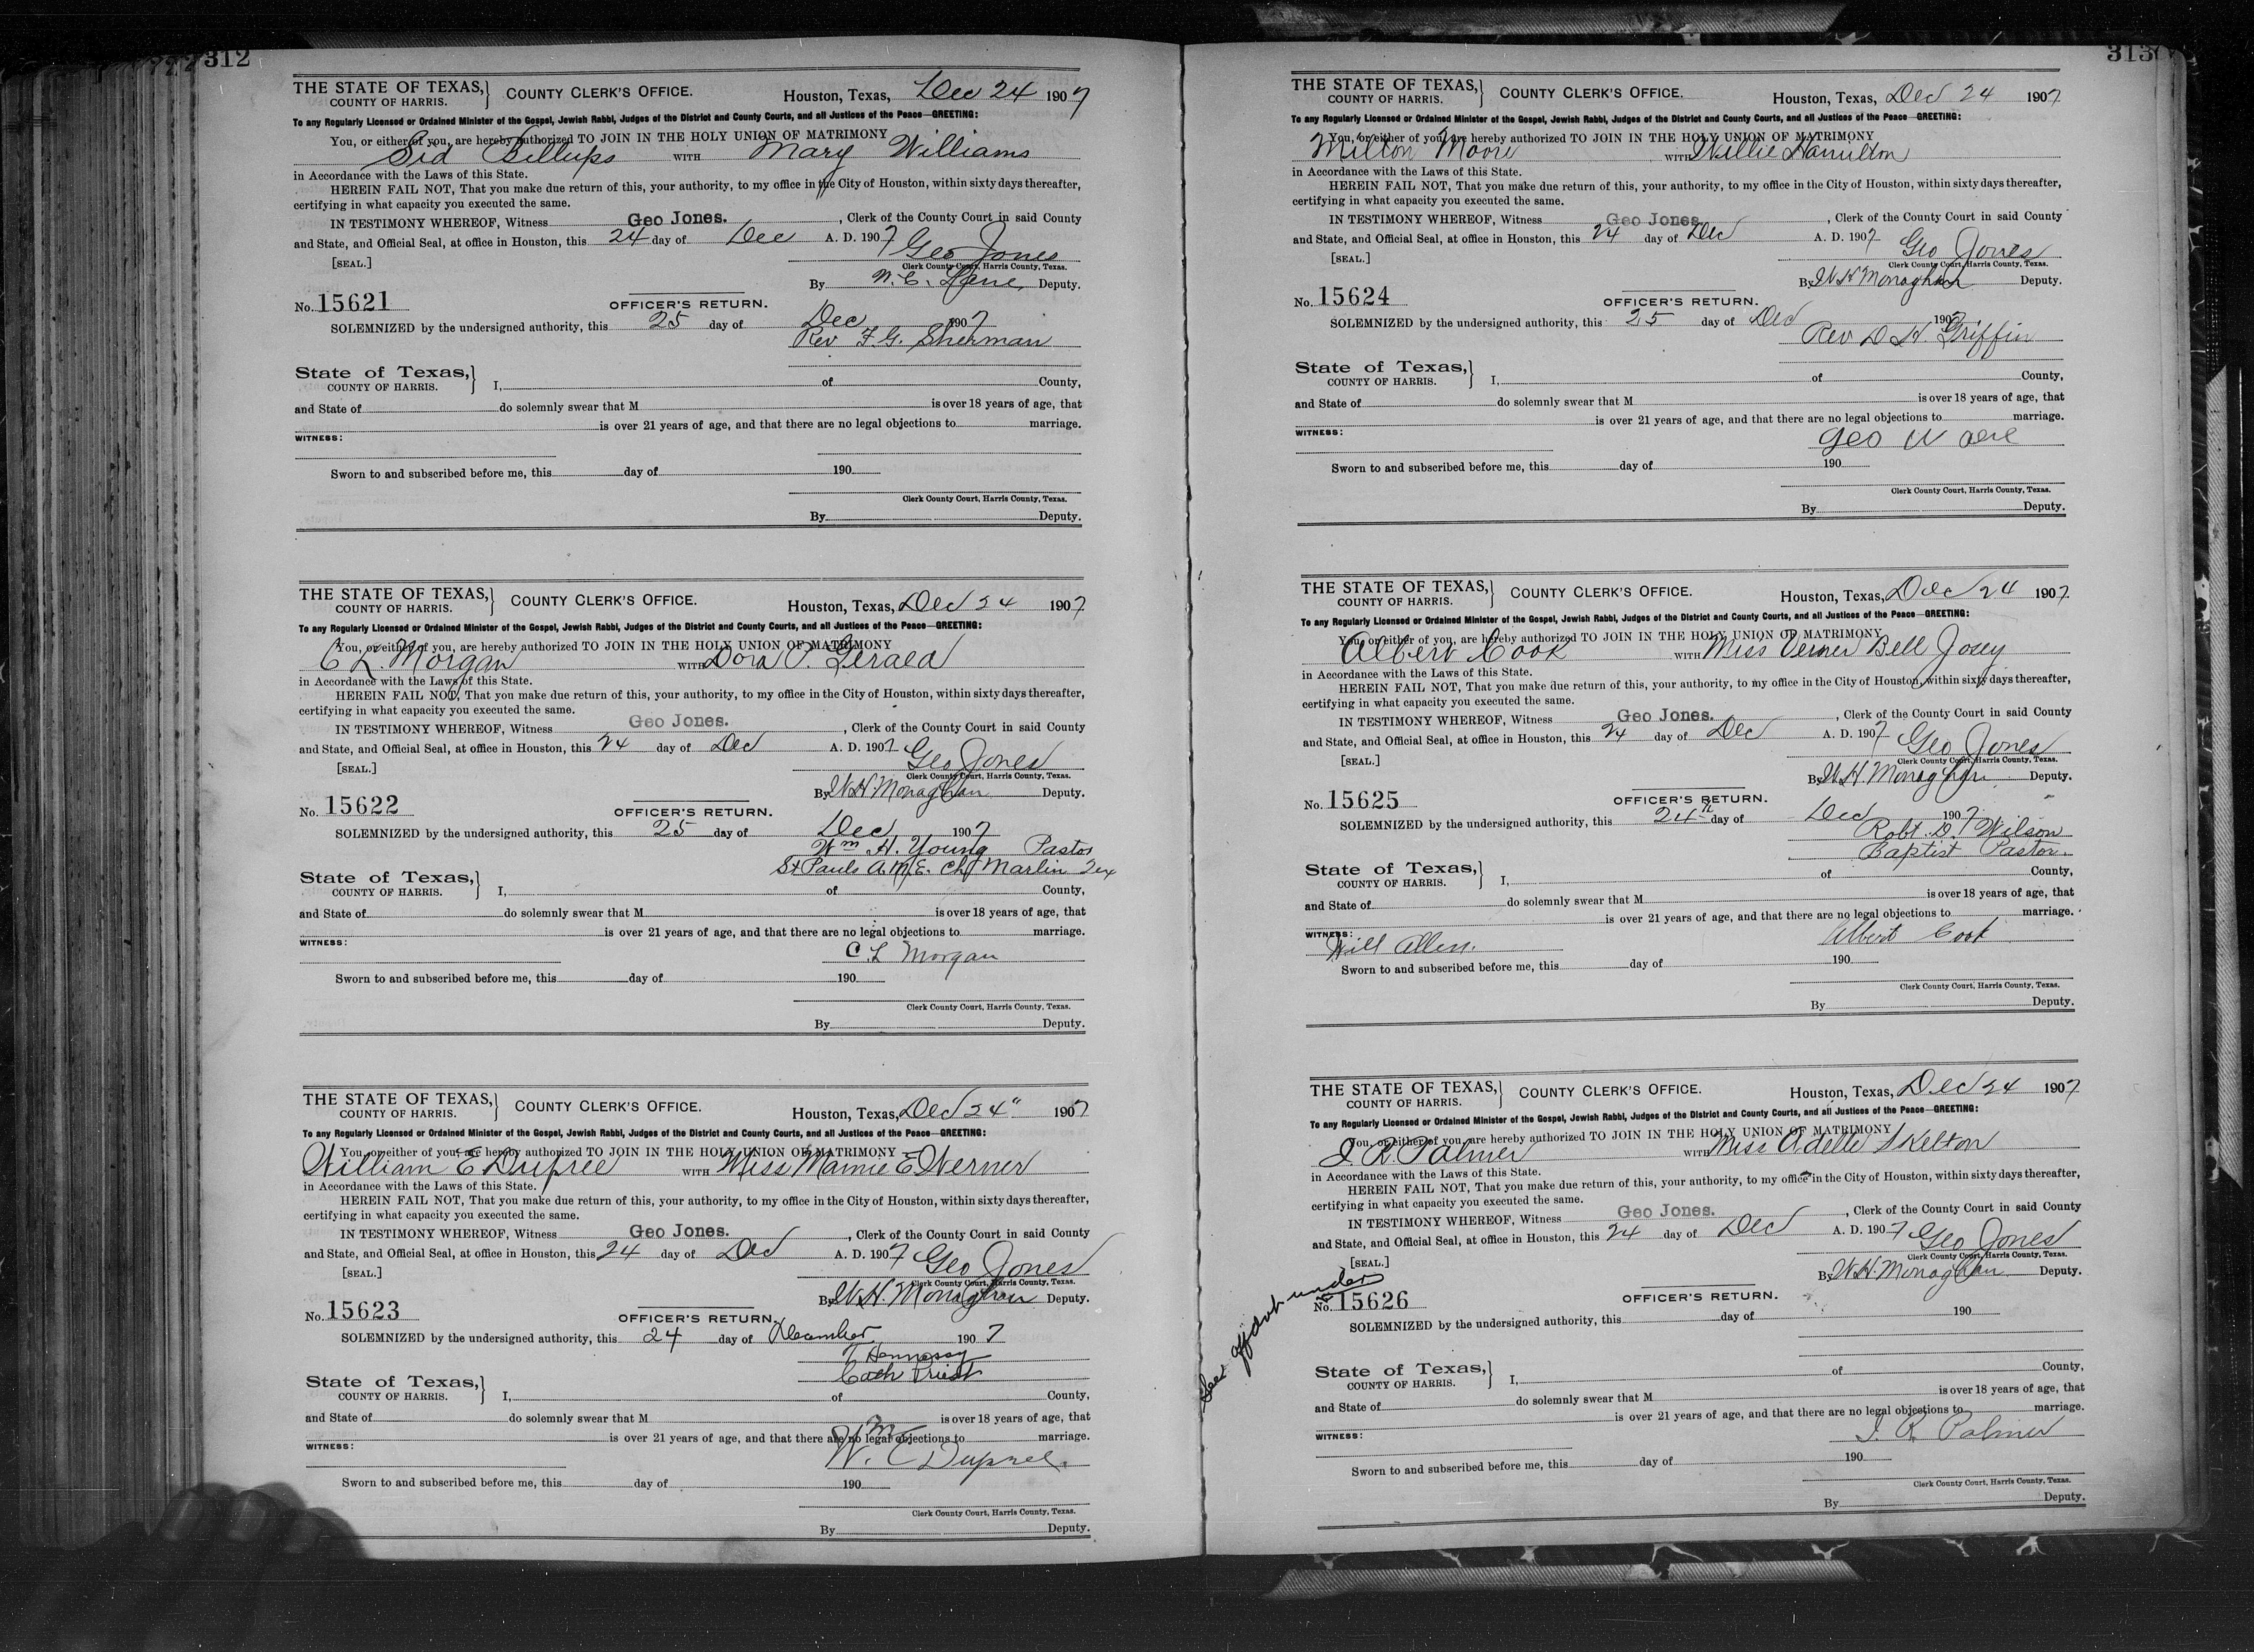 312
THE STATE OF TEXAS, COUNTY OF HARRIS. } COUNTY CLERK'S OFFICE. Houston, Texas, Dec 24 1907
To any Regularly Licensed or Ordained Minister of the Gospel, Jewish Rabbi, Judges of the District and County Courts, and all Justices of the Peace—GREETING:
You, or either of you, are hereby authorized TO JOIN IN THE HOLY UNION OF MATRIMONY
Sid Billups WITH Mary Williams
in Accordance with the Laws of this State.
HEREIN FAIL NOT, That you make due return of this, your authority, to my office in the City of Houston, within sixty days thereafter,
certifying in what capacity you executed the same.
IN TESTIMONY WHEREOF, Witness Geo Jones. , Clerk of the County Court in said County
and State, and Official Seal, at office in Houston, this 24 day of Dec A. D. 1907
[SEAL.] Geo Jones
Clerk County Court, Harris County, Texas.
By W. C. Lane, Deputy.
No. 15621 OFFICER'S RETURN.
SOLEMNIZED by the undersigned authority, this 25 day of Dec 1907
Rev F. G. Sherman
State of Texas, COUNTY OF HARRIS. } I, of County,
and State of do solemnly swear that M is over 18 years of age, that
is over 21 years of age, and that there are no legal objections to marriage.
WITNESS:
Sworn to and subscribed before me, this day of 190
Clerk County Court, Harris County, Texas.
By Deputy.
THE STATE OF TEXAS, COUNTY OF HARRIS. } COUNTY CLERK'S OFFICE. Houston, Texas, Dec 24 1907
To any Regularly Licensed or Ordained Minister of the Gospel, Jewish Rabbi, Judges of the District and County Courts, and all Justices of the Peace—GREETING:
You, or either of you, are hereby authorized TO JOIN IN THE HOLY UNION OF MATRIMONY
C L. Morgan WITH Dora P. Gerald
in Accordance with the Laws of this State.
HEREIN FAIL NOT, That you make due return of this, your authority, to my office in the City of Houston, within sixty days thereafter,
certifying in what capacity you executed the same.
IN TESTIMONY WHEREOF, Witness Geo Jones. , Clerk of the County Court in said County
and State, and Official Seal, at office in Houston, this 24 day of Dec A. D. 1907
[SEAL.] Geo Jones
Clerk County Court, Harris County, Texas.
By W. H. Monaghan Deputy.
No. 15622 OFFICER'S RETURN.
SOLEMNIZED by the undersigned authority, this 25 day of Dec 1907
Wm H. Young Pastor
St Pauls A.M.E. Ch Marlin Tex
State of Texas, COUNTY OF HARRIS. } I, of County,
and State of do solemnly swear that M is over 18 years of age, that
is over 21 years of age, and that there are no legal objections to marriage.
WITNESS:
C L Morgan
Sworn to and subscribed before me, this day of 190
Clerk County Court, Harris County, Texas.
By Deputy.
THE STATE OF TEXAS, COUNTY OF HARRIS. } COUNTY CLERK'S OFFICE. Houston, Texas, Dec 24" 1907
To any Regularly Licensed or Ordained Minister of the Gospel, Jewish Rabbi, Judges of the District and County Courts, and all Justices of the Peace—GREETING:
You, or either of you, are hereby authorized TO JOIN IN THE HOLY UNION OF MATRIMONY
William E Dupree WITH Miss Mamie E Werner
in Accordance with the Laws of this State.
HEREIN FAIL NOT, That you make due return of this, your authority, to my office in the City of Houston, within sixty days thereafter,
certifying in what capacity you executed the same.
IN TESTIMONY WHEREOF, Witness Geo Jones. , Clerk of the County Court in said County
and State, and Official Seal, at office in Houston, this 24 day of Dec A. D. 1907
[SEAL.] Geo Jones
Clerk County Court, Harris County, Texas.
By W. H. Monaghan Deputy.
No. 15623 OFFICER'S RETURN.
SOLEMNIZED by the undersigned authority, this 24 day of December 1907
T Hennessy
Cath Priest
State of Texas, COUNTY OF HARRIS. } I, of County,
and State of do solemnly swear that M is over 18 years of age, that
is over 21 years of age, and that there are no legal objections to marriage.
WITNESS:
Wm E Dupree.
Sworn to and subscribed before me, this day of 190
Clerk County Court, Harris County, Texas.
By Deputy.
313
THE STATE OF TEXAS, COUNTY OF HARRIS. } COUNTY CLERK'S OFFICE. Houston, Texas, Dec 24 1907
To any Regularly Licensed or Ordained Minister of the Gospel, Jewish Rabbi, Judges of the District and County Courts, and all Justices of the Peace—GREETING:
You, or either of you, are hereby authorized TO JOIN IN THE HOLY UNION OF MATRIMONY
Milton Moore WITH Willie Hamilton
in Accordance with the Laws of this State.
HEREIN FAIL NOT, That you make due return of this, your authority, to my office in the City of Houston, within sixty days thereafter,
certifying in what capacity you executed the same.
IN TESTIMONY WHEREOF, Witness Geo Jones. , Clerk of the County Court in said County
and State, and Official Seal, at office in Houston, this 24 day of Dec A. D. 1907
[SEAL.] Geo Jones
Clerk County Court, Harris County, Texas.
By W H Monaghan Deputy.
No. 15624 OFFICER'S RETURN.
SOLEMNIZED by the undersigned authority, this 25 day of Dec 1907
Rev D. H. Griffin
State of Texas, COUNTY OF HARRIS. } I, of County,
and State of do solemnly swear that M is over 18 years of age, that
is over 21 years of age, and that there are no legal objections to marriage.
WITNESS:
Geo W
Sworn to and subscribed before me, this day of 190
Clerk County Court, Harris County, Texas.
By Deputy.
THE STATE OF TEXAS, COUNTY OF HARRIS. } COUNTY CLERK'S OFFICE. Houston, Texas, Dec 24 1907
To any Regularly Licensed or Ordained Minister of the Gospel, Jewish Rabbi, Judges of the District and County Courts, and all Justices of the Peace—GREETING:
You, or either of you, are hereby authorized TO JOIN IN THE HOLY UNION OF MATRIMONY
Albert Cook WITH Miss Verner Bell Josey
in Accordance with the Laws of this State.
HEREIN FAIL NOT, That you make due return of this, your authority, to my office in the City of Houston, within sixty days thereafter,
certifying in what capacity you executed the same.
IN TESTIMONY WHEREOF, Witness Geo Jones. , Clerk of the County Court in said County
and State, and Official Seal, at office in Houston, this 24 day of Dec A. D. 1907
[SEAL.] Geo Jones
Clerk County Court, Harris County, Texas.
By W. H. Monaghan Deputy.
No. 15625 OFFICER'S RETURN.
SOLEMNIZED by the undersigned authority, this 24th day of Dec 1907
Robt. D. Wilson
Baptist Pastor.
State of Texas, COUNTY OF HARRIS. } I, of County,
and State of do solemnly swear that M is over 18 years of age, that
is over 21 years of age, and that there are no legal objections to marriage.
WITNESS:
Will Allen. Albert Cook
Sworn to and subscribed before me, this day of 190
Clerk County Court, Harris County, Texas.
By Deputy.
THE STATE OF TEXAS, COUNTY OF HARRIS. } COUNTY CLERK'S OFFICE. Houston, Texas, Dec 24 1907
To any Regularly Licensed or Ordained Minister of the Gospel, Jewish Rabbi, Judges of the District and County Courts, and all Justices of the Peace—GREETING:
You, or either of you, are hereby authorized TO JOIN IN THE HOLY UNION OF MATRIMONY
J. R. Palmer WITH Miss Adelle Skelton
in Accordance with the Laws of this State.
HEREIN FAIL NOT, That you make due return of this, your authority, to my office in the City of Houston, within sixty days thereafter,
certifying in what capacity you executed the same.
IN TESTIMONY WHEREOF, Witness Geo Jones. , Clerk of the County Court in said County
and State, and Official Seal, at office in Houston, this 24 day of Dec A. D. 1907
[SEAL.] Geo Jones
Clerk County Court, Harris County, Texas.
By W. H. Monaghan Deputy.
See affdvt under
No. 15626 OFFICER'S RETURN.
SOLEMNIZED by the undersigned authority, this day of 190
State of Texas, COUNTY OF HARRIS. } I, of County,
and State of do solemnly swear that M is over 18 years of age, that
is over 21 years of age, and that there are no legal objections to marriage.
WITNESS:
J. R. Palmer
Sworn to and subscribed before me, this day of 190
Clerk County Court, Harris County, Texas.
By Deputy.